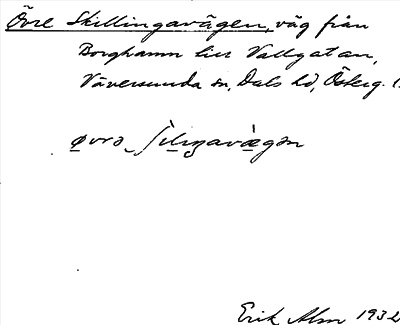 Övre Skillingavägen, väg från
Borghamn till Vallgatan,
Väversunda sn, Dals hd, Österg.
øvrə ʃiliŋavægən
Erik Alm 1932